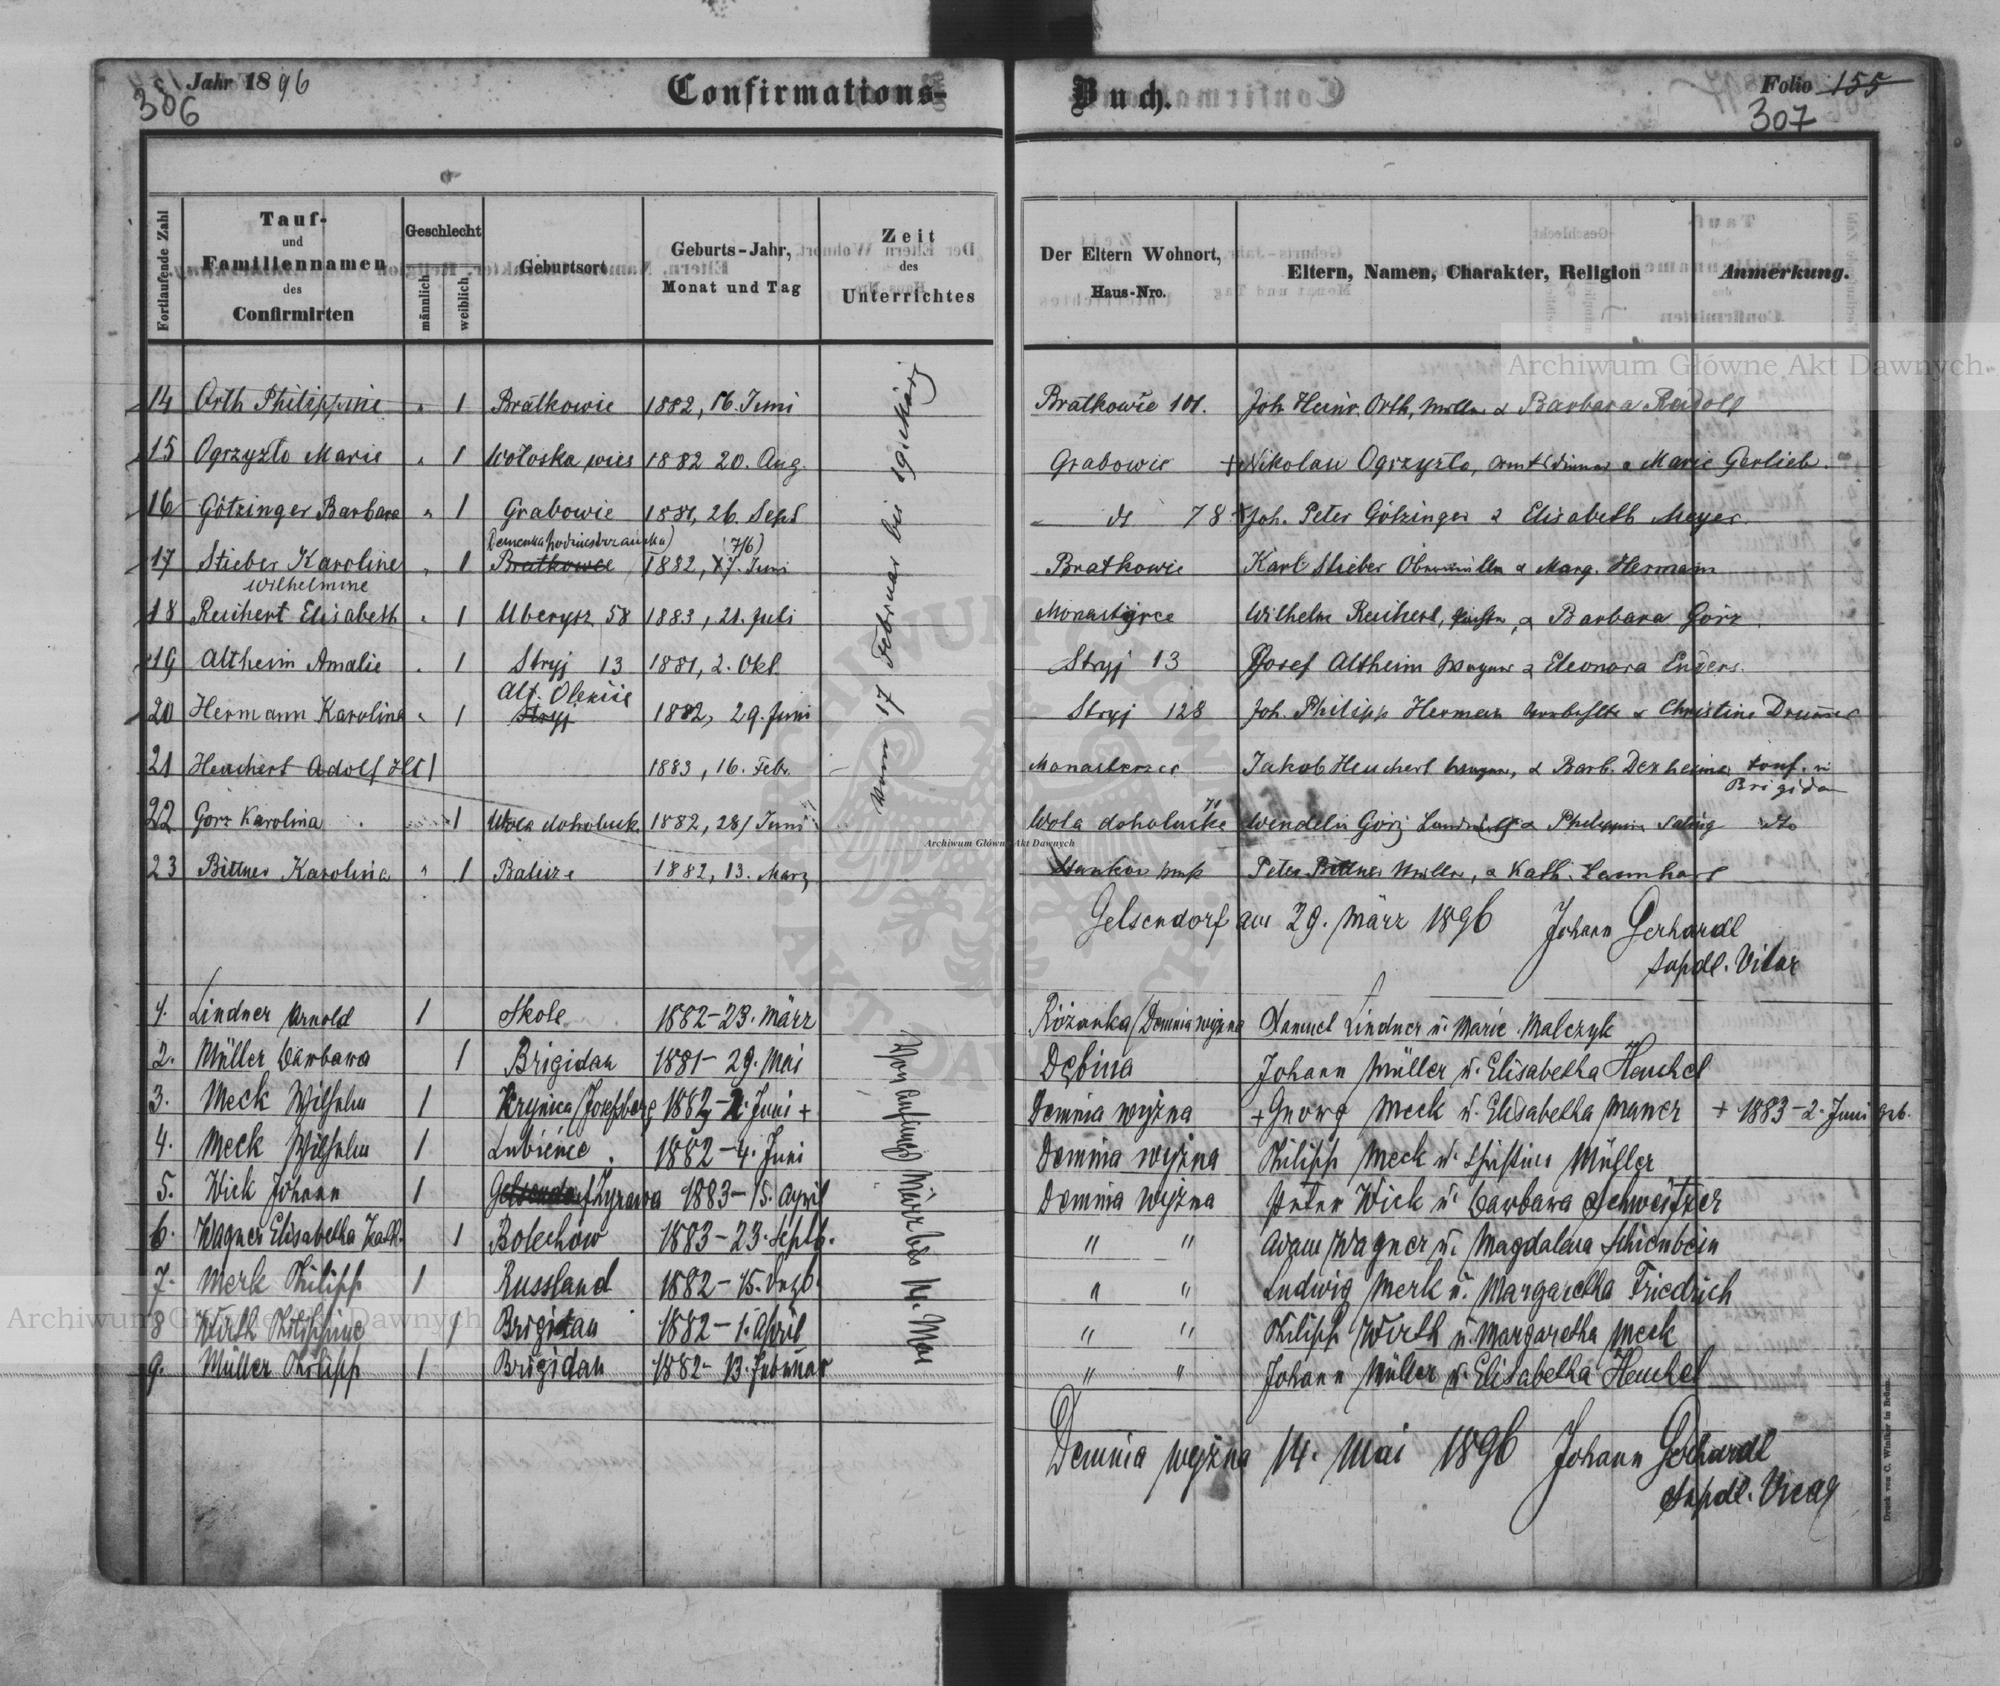 Jahr 1896
306
Confirmations-
Buch.
Folio 155
307
Fortlaufende Zahl
Tauf-
und
Familiennamen
des
Confirmirten
Geschlecht
männlich
weiblich
Geburtsort
Geburts-Jahr,
Monat und Tag
Zeit
des
Unterrichtes
Der Eltern Wohnort,
Haus-Nro.
Eltern, Namen, Charakter, Religion
Anmerkung.
14 Orth Philippine " 1 Bratkowie 1882, 16. Juni Bratkowie 101. Joh. Heinr. Orth, Müller & Barbara Rudolf
15 Ogrzyzlo Marie " 1 Wołoska wies 1882 20. Aug. Grabowie + Nikolau Ogrzyzlo, & Marie Gerlieb.
16 Götzinger Barbara " 1 Grabowie 1881, 26. Sept 78 Joh. Peter Götzinger & Elisabeth Meyer.
(7/6)
17 Stieber Karoline " 1 Bratkowce 1882, 17. Juni Bratkowie Karl Stieber & Marg. Hermann
Wilhelmine
18 Reichert Elisabeth " 1 Uberysz 58 1883, 21. Juli Monastyrce Wilhelm Reichert, & Barbara Görz
19 Altheim Amalie " 1 Stryj 13 1881, 2. Okt. Stryj 13 Josef Altheim Wagner & Eleonora Enders.
Alt. Olexice
20 Hermann Karolina " 1 Stryj 1882, 29. Juni Stryj 128 Joh. Philipp Herman & Christine Drumer
21 Heuchert Adolf 1 1883, 16. Feb. Monasterzec Jakob Heuchert Wagner, & Barb. Dexheimer konf. in
Brigidau
22 Görz Karolina 1 Wola doholuck. 1882, 28/ Juni Wola dohołucka 71 Wendelin Görz Landwirt & Philippine Saling dto
23 Bittner Karolina " 1 Balicze 1882, 13. März Peter Bittner Müller, & Kath. Leonhart
vom 17 Februar bis 19. März
Gelsendorf am 29. März 1896 Johann Gerhardt
supdl. Vikar
1. Lindner Arnold 1 Skole 1882-23. März Różanka/Demnia wyżna Samuel Lindner u. Marie Malczyk
2. Müller Barbara 1 Brigidau 1881-29. Mai Dębina Johann Müller u. Elisabetha Heuchel
3. Meck Wilhelm 1 Krynica/Josefsberg 1882-2. Juni + Demnia wyżna + Georg Meck u. Elisabetha Maner + 1883-2. Juni geb.
4. Meck Wilhelm 1 Lubieńce. 1882-4. Juni Demnia wyżna Philipp Meck u. Christina Müller
5. Wick Johann 1 Gelsendorf Żyrawa 1883-15. April Demnia wyżna Peter Wick u. Barbara Schweitzer
6. Wagner Elisabetha Kath. 1 Bolechów 1883-23. Septb. " " Adam Wagner u. Magdalena Schienbein
7. Merk Philipp 1 Russland 1882-15. Dezb. " " Ludwig Merk u. Margaretha Friedrich
8 Wirth Philippine 1 Brigidau 1882-1. April " " Philipp Wirth u. Margaretha Meck
9. Müller Philipp 1 Brigidau 1882-13. Februar " " Johann Müller u. Elisabetha Heuchel
Von Anfangs März bis 14. Mai
Demnia wyżna 14. Mai 1896 Johann Gerhardt
supdl. Vicar
Druck von C. Winiker in Brünn.
Archiwum Główne Akt Dawnych
Archiwum Główne Akt Dawnych
Archiwum Główne Akt Dawnych